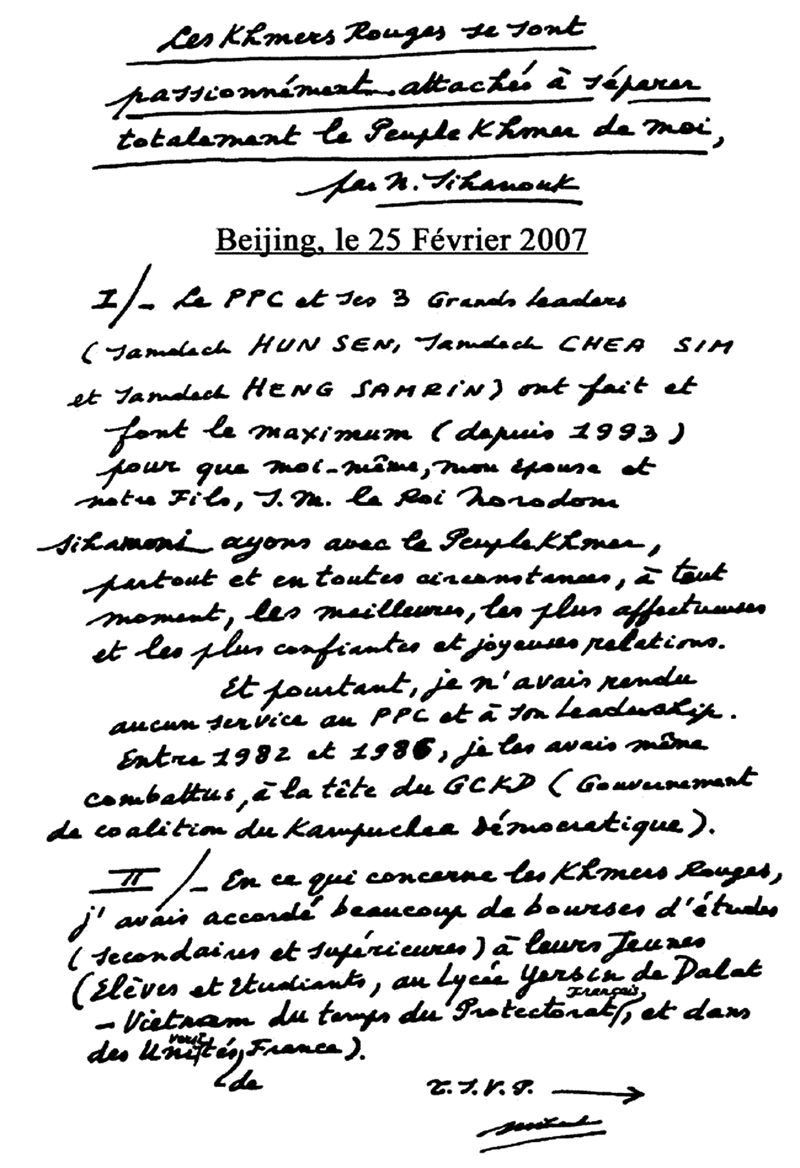 Les Khmers Rouges se sont
passionnément attachés à séparer
totalement le Peuple Khmer de moi,
par N. Sihanouk
Beijing, le 25 Février 2007
I/- Le PPC et ses 3 Grands Leaders
(Samdech HUN SEN, Samdech CHEA SIM
et Samdech HENG SAMRIN) ont fait et
font le maximum (depuis 1993)
pour que moi-même, mon épouse et
notre Fils, S.M. le Roi Norodom
Sihamoni ayons avec le Peuple Khmer,
partout et en toutes circonstances, à tout
moment, les meilleures, les plus affectueuses
et les plus confiantes et joyeuses relations.
Et pourtant, je n'avais rendu
aucun service au PPC et à son Leadership.
Entre 1982 et 1986, je les avais même
combattus, à la tête du GCKD (Gouvernement
de coalition du Kampuchea Démocratique).
II/- En ce qui concerne les Khmers Rouges,
j'avais accordé beaucoup de bourses d'études
(secondaires et supérieures) à leurs Jeunes
(Elèves et Etudiants, au Lycée Yersin de Dalat
- Vietnam du temps du Protectorat Français, et dans
des Universités de France).
T.S.V.P.